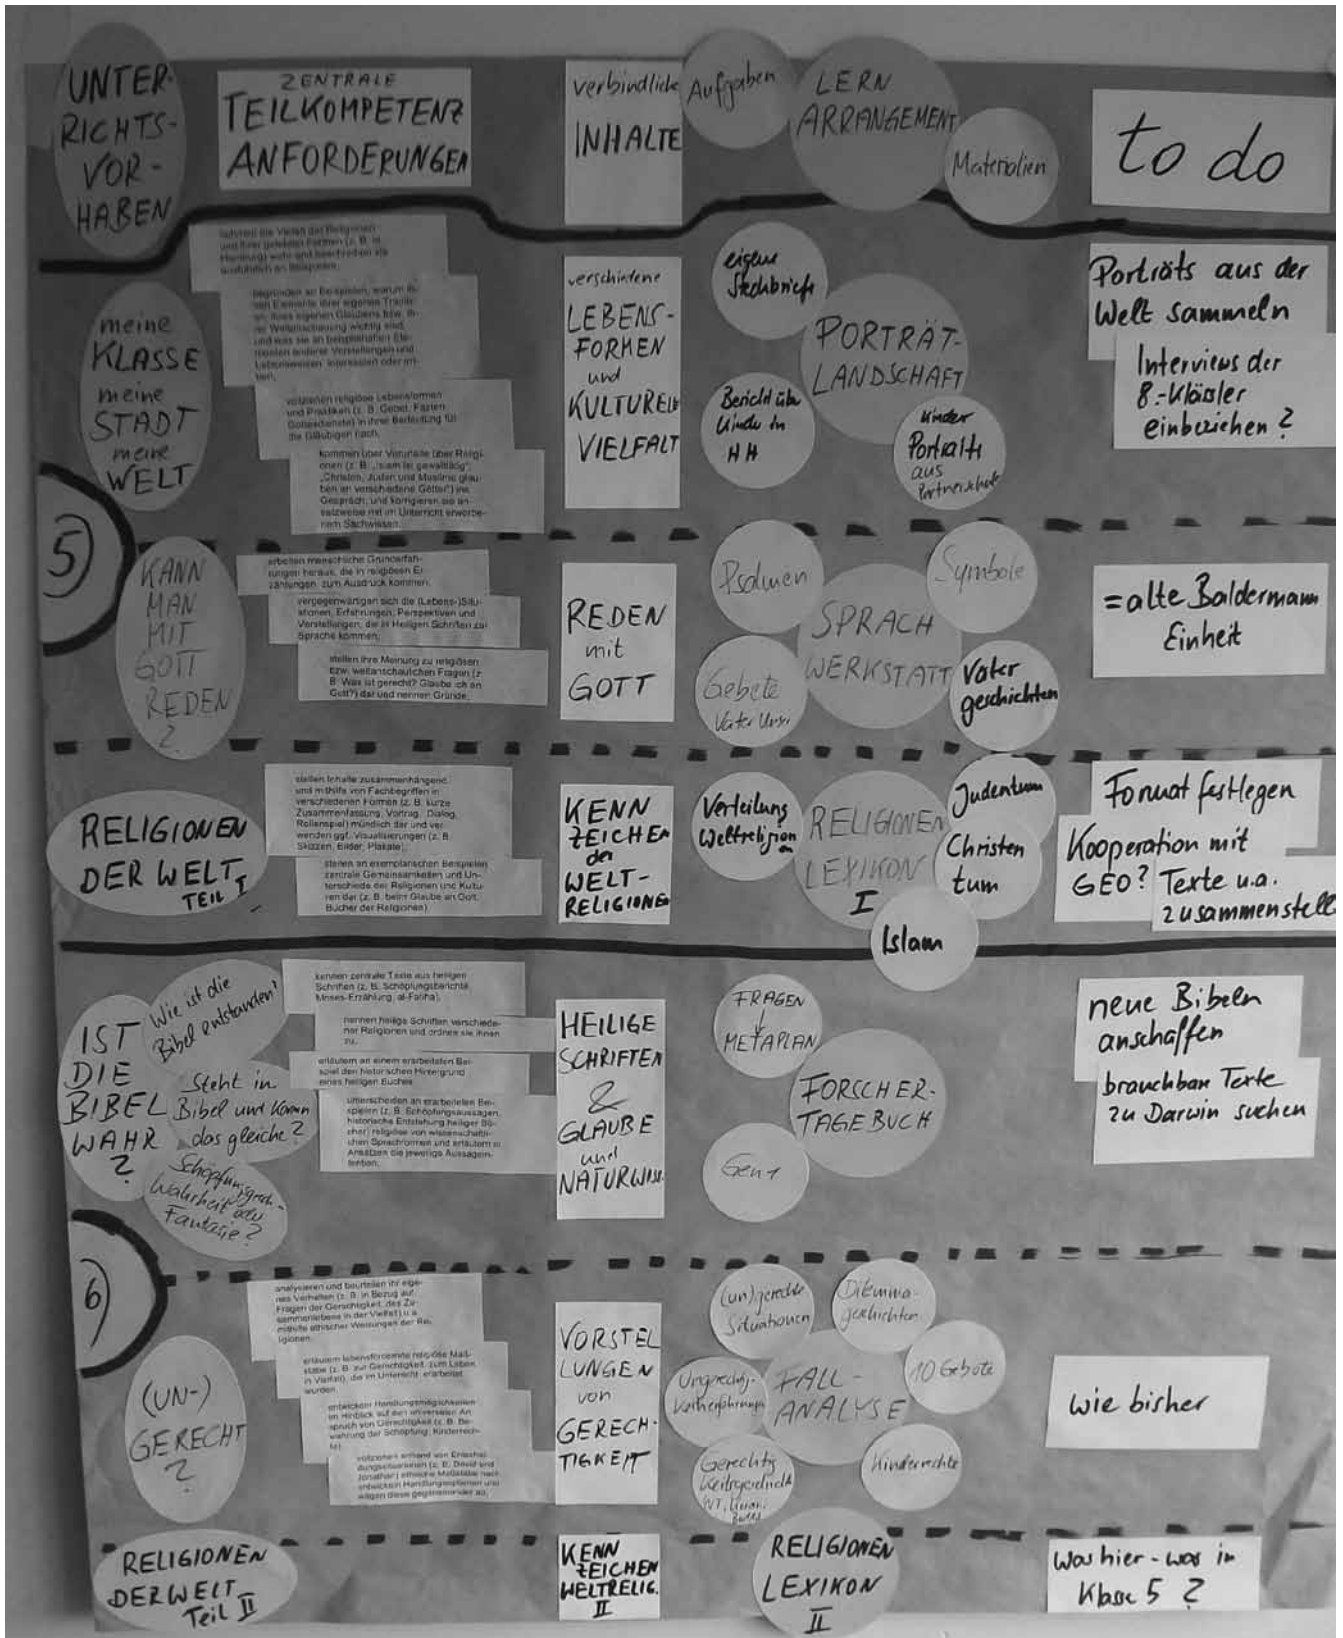 UNTER-
RICHTS-
VOR-
HABEN
ZENTRALE
TEILKOMPETENZ
ANFORDERUNGEN
verbindliche
INHALTE
Aufgaben
LERN
ARRANGEMENT
Materialien
to do
5
meine
KLASSE
meine
STADT
meine
WELT
nehmen die Vielfalt der Religionen
und ihrer gelebten Formen (z. B. in
Hamburg) wahr und beschreiben sie
ausführlich an Beispielen.
begründen an Beispielen, warum ih-
nen Elemente ihrer eigenen Traditi-
on, ihres eigenen Glaubens bzw. ih-
rer Weltanschauung wichtig sind,
und was sie an beispielhaften Ele-
menten anderer Vorstellungen und
Lebensweisen interessiert oder irri-
tiert,
vollziehen religiöse Lebensformen
und Praktiken (z. B. Gebet, Fasten,
Gottesdienste) in ihrer Bedeutung für
die Gläubigen nach,
kommen über Vorurteile über Religi-
onen (z. B. „Islam ist gewalttätig“,
„Christen, Juden und Muslime glau-
ben an verschiedene Götter“) ins
Gespräch, und korrigieren sie an-
satzweise mit im Unterricht erworbe-
nem Sachwissen.
verschiedene
LEBENS-
FORMEN
und
KULTURELLE
VIELFALT
eigene
Steckbriefe
PORTRÄT-
LANDSCHAFT
Bericht über
Kinder in
HH
Kinder
Portraits
aus
Partnerschule
Porträts aus der
Welt sammeln
Interviews der
8.-Klässler
einbeziehen ?
KANN
MAN
MIT
GOTT
REDEN
?
arbeiten menschliche Grunderfah-
rungen heraus, die in religiösen Er-
zählungen zum Ausdruck kommen,
vergegenwärtigen sich die (Lebens-)Situ-
ationen, Erfahrungen, Perspektiven und
Vorstellungen, die in Heiligen Schriften zur
Sprache kommen,
stellen ihre Meinung zu religiösen
bzw. weltanschaulichen Fragen (z.
B. Was ist gerecht? Glaube ich an
Gott?) dar und nennen Gründe,
REDEN
mit
GOTT
Psalmen
Symbole
SPRACH
WERKSTATT
Gebete
Vater Unser
Väter
geschichten
=alte Baldermann
Einheit
RELIGIONEN
DER WELT
TEIL I
stellen Inhalte zusammenhängend
und mithilfe von Fachbegriffen in
verschiedenen Formen (z. B. kurze
Zusammenfassung, Vortrag, Dialog,
Rollenspiel) mündlich dar und ver-
wenden ggf. Visualisierungen (z. B.
Skizzen, Bilder, Plakate),
stellen an exemplarischen Beispielen
zentrale Gemeinsamkeiten und Un-
terschiede der Religionen und Kultu-
ren dar (z. B. beim Glaube an Gott,
Bücher der Religionen)
KENN
ZEICHEN
der
WELT-
RELIGIONEN
Verteilung
Weltreligionen
RELIGIONEN
LEXIKON
I
Judentum
Christen
tum
Islam
Format festlegen
Kooperation mit
GEO?
Texte u.a.
zusammenstell
IST
DIE
BIBEL
WAHR
?
Wie ist die
Bibel entstanden?
Steht in
Bibel und Koran
das gleiche ?
Schöpfungsgesch.-
Wahrheit oder
Fantasie ?
kennen zentrale Texte aus heiligen
Schriften (z. B. Schöpfungsberichte,
Moses-Erzählung, al-Fatiha),
nennen heilige Schriften verschiede-
ner Religionen und ordnen sie ihnen
zu,
erläutern an einem erarbeiteten Bei-
spiel den historischen Hintergrund
eines heiligen Buches
unterscheiden an erarbeiteten Bei-
spielen (z. B. Schöpfungsaussagen,
historische Entstehung heiliger Bü-
cher) religiöse von wissenschaftli-
chen Sprachformen und erläutern in
Ansätzen die jeweilige Aussagein-
tention.
HEILIGE
SCHRIFTEN
&
GLAUBE
und
NATURWISS.
FRAGEN
↓
METAPLAN
FORSCHER-
TAGEBUCH
Gen 1
neue Bibeln
anschaffen
brauchbare Texte
zu Darwin suchen
6
(UN-)
GERECHT
?
analysieren und beurteilen ihr eige-
nes Verhalten (z. B. in Bezug auf
Fragen der Gerechtigkeit, des Zu-
sammenlebens in der Vielfalt) u. a.
mithilfe ethischer Weisungen der Rel-
igionen.
erläutern lebensfördernde religiöse Maß-
stäbe (z. B. zur Gerechtigkeit, zum Leben
in Vielfalt), die im Unterricht erarbeitet
wurden.
entwickeln Handlungsmöglichkeiten
im Hinblick auf den universalen An-
spruch von Gerechtigkeit (z. B. Be-
wahrung der Schöpfung; Kinderrech-
te)
vollziehen anhand von Entschei-
dungssituationen (z. B. David und
Jonathan) ethische Maßstäbe nach,
entwickeln Handlungsoptionen und
wägen diese gegeneinander ab,
VORSTEL
LUNGEN
von
GERECH-
TIGKEIT
(un)gerechte
Situationen
Dilemma-
geschichten
10 Gebote
Ungerechtig-
keitserfahrungen
FALL-
ANALYSE
Gerechtig
keitsgeschichte
NT, Koran,
Kinderrechte
wie bisher
RELIGIONEN
DER WELT
Teil II
KENN
ZEICHEN
WELTRELIG.
II
RELIGIONEN
LEXIKON
II
Was hier - was in
Klasse 5 ?